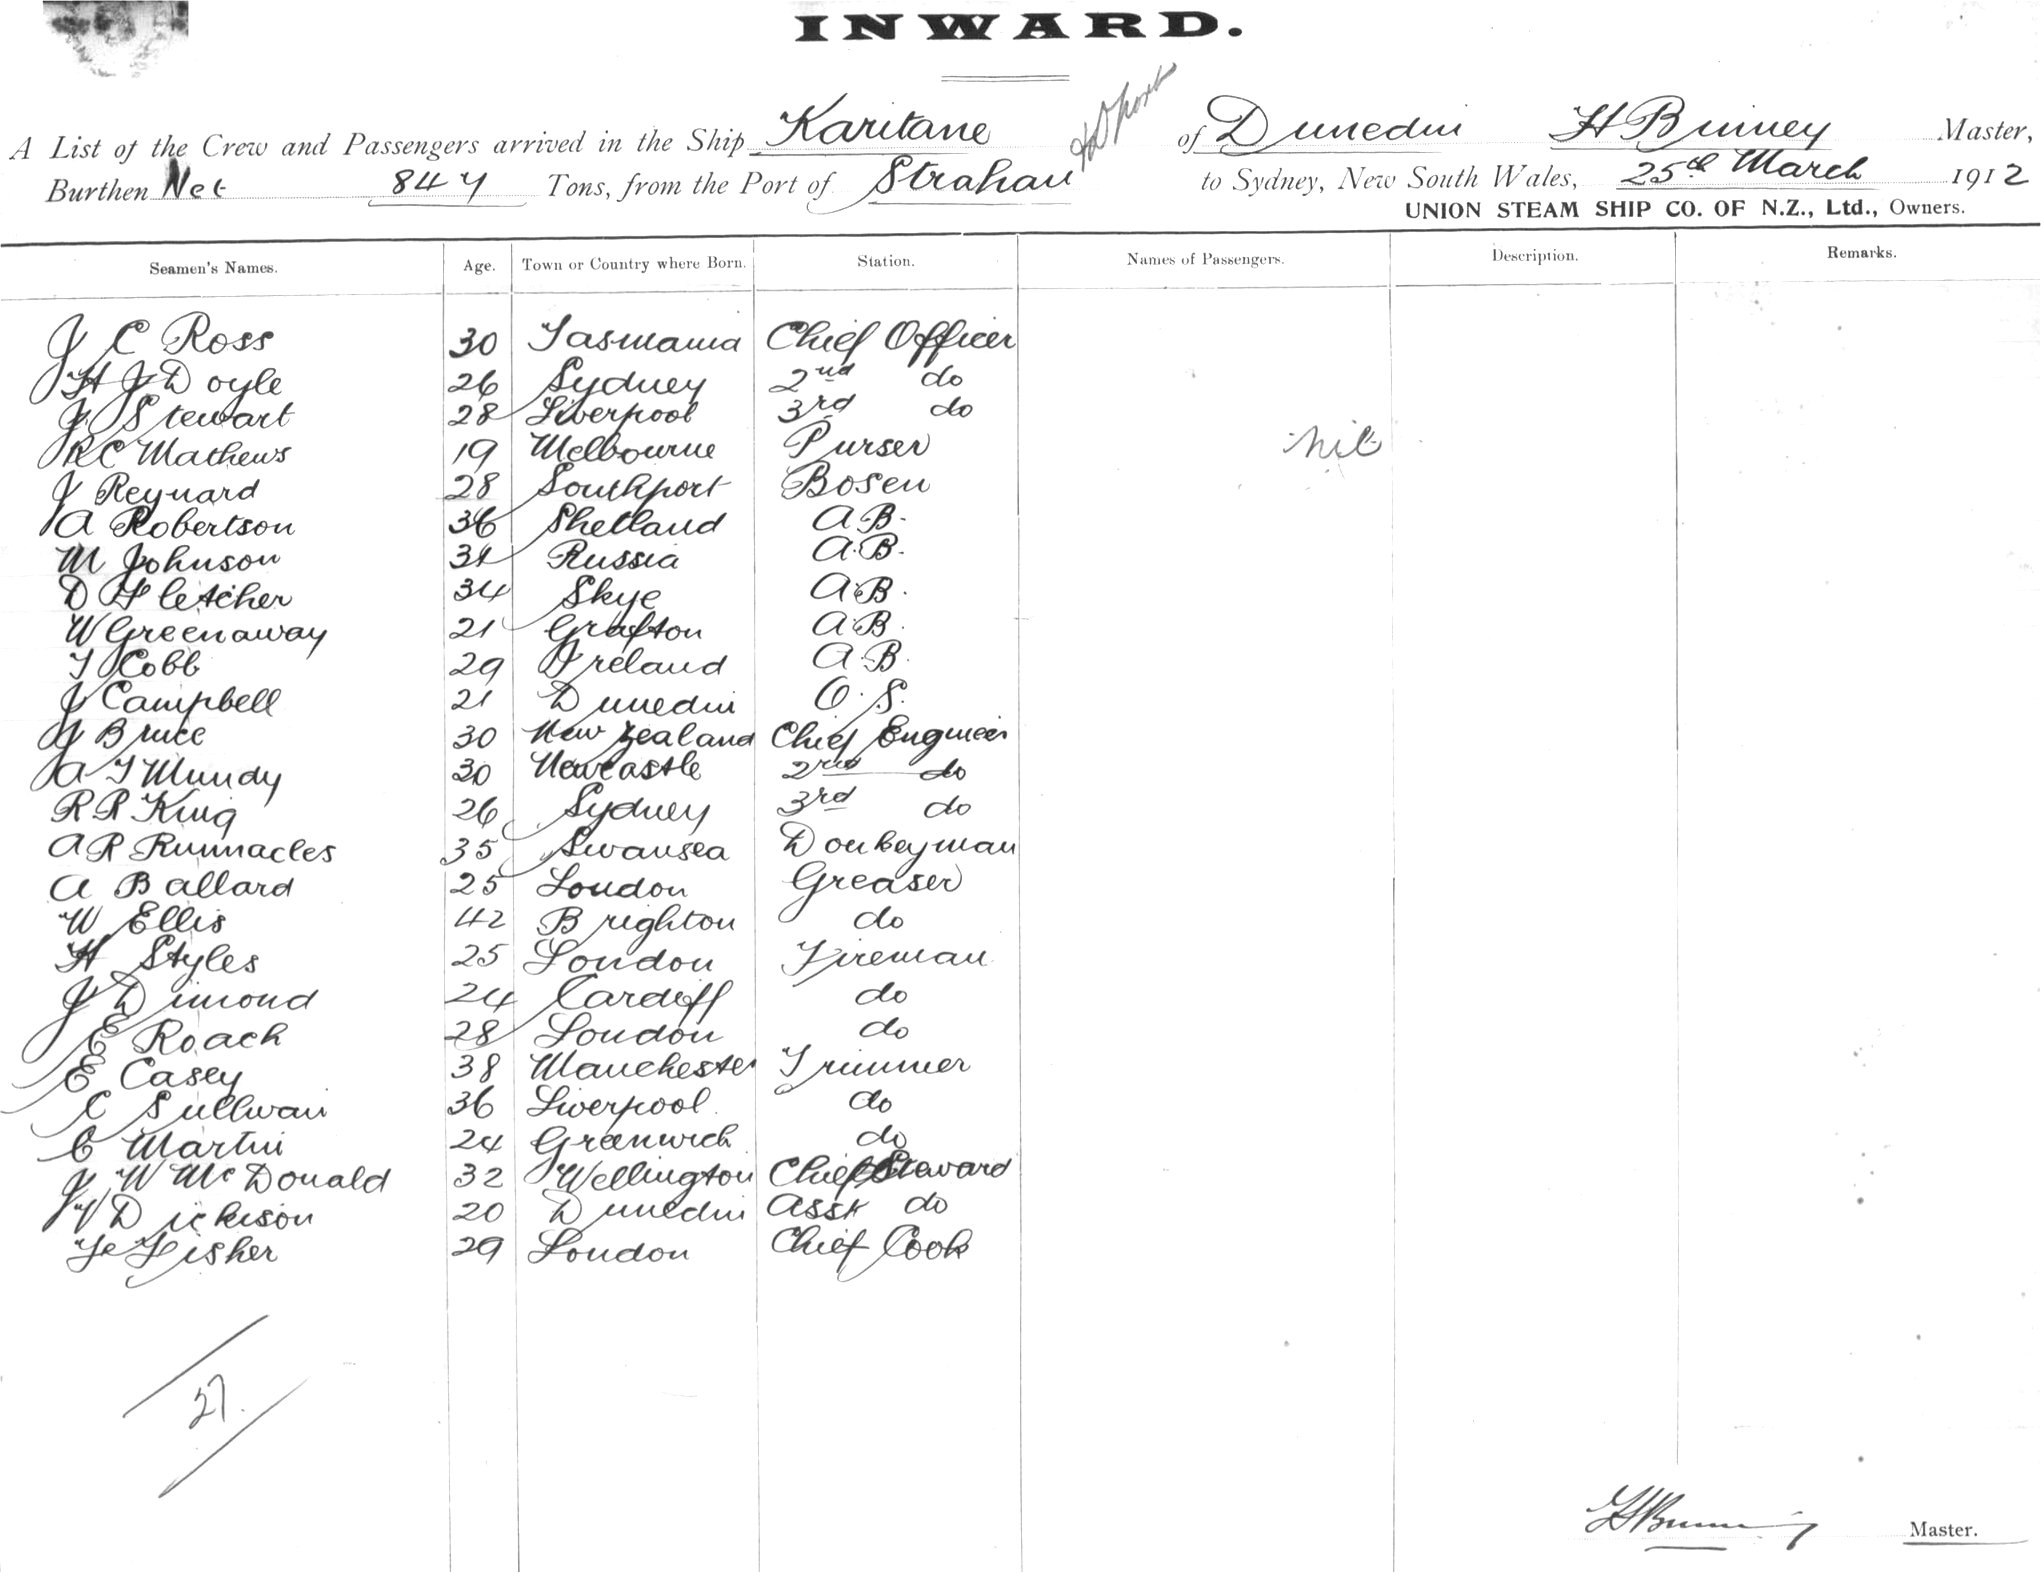 INWARD.
A List of the Crew and Passengers arrived in the Ship Karitane of Dunedin H Binney Master,
Burthen Net 847 Tons, from the Port of Strahan to Sydney, New South Wales, 25th March 1912
UNION STEAM SHIP CO. OF N.Z., Ltd., Owners.
Seamen's Names. Age. Town or Country where Born. Station. Names of Passengers. Description. Remarks.
J C Ross 30 Tasmania Chief Officer
H J Doyle 26 Sydney 2nd do
J Stewart 28 Liverpool 3rd do
R C Mathews 19 Melbourne Purser nil
J Reynard 28 Southport Bosen
A Robertson 36 Shetland A.B.
M Johnson 31 Russia A.B.
D Fletcher 34 Skye A.B.
W Greenaway 21 Grafton A.B.
T Cobb 29 Ireland A.B.
J Campbell 21 Dunedin O.S.
J Bruce 30 New Zealand Chief Engineer
A T Mundy 30 Newcastle 2nd do
R R King 26 Sydney 3rd do
A R Runnacles 35 Swansea Donkeyman
A Ballard 25 London Greaser
W Ellis 42 Brighton do
H Styles 25 London Fireman
J Dimond 24 Cardiff do
E Roach 28 London do
E Casey 38 Manchester Trimmer
C Sullivan 36 Liverpool do
C Martin 24 Greenwich do
J W McDonald 32 Wellington Chief Steward
Dickison 20 Dunedin Asst do
Fisher 29 London Chief Cook
27.
H Binney Master.